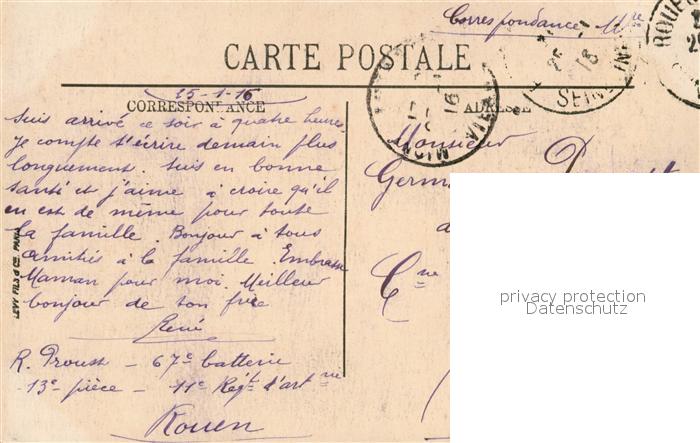 Correspondance Mre
CARTE POSTALE
25-1-16
CORRESPONDANCE
ADRESSE
suis arrivé ce soir à quatre heures.
Je compte t'écrire demain plus
longuement. Suis en bonne
santé et j'aime à croire qu'il
en est de même pour toute
la famille. Bonjour à tous
amitiés à la famille. Embrasse
Maman pour moi. Meilleur
bonjour de ton frère
René
R. Proust - 67e batterie
13e pièce - 11e Régt d'artrie
Rouen
Monsieur
Germ
Cne
ROUE
SEINE INF
16
VIE
LEVY FILS & CIE PARIS
privacy protection
Datenschutz